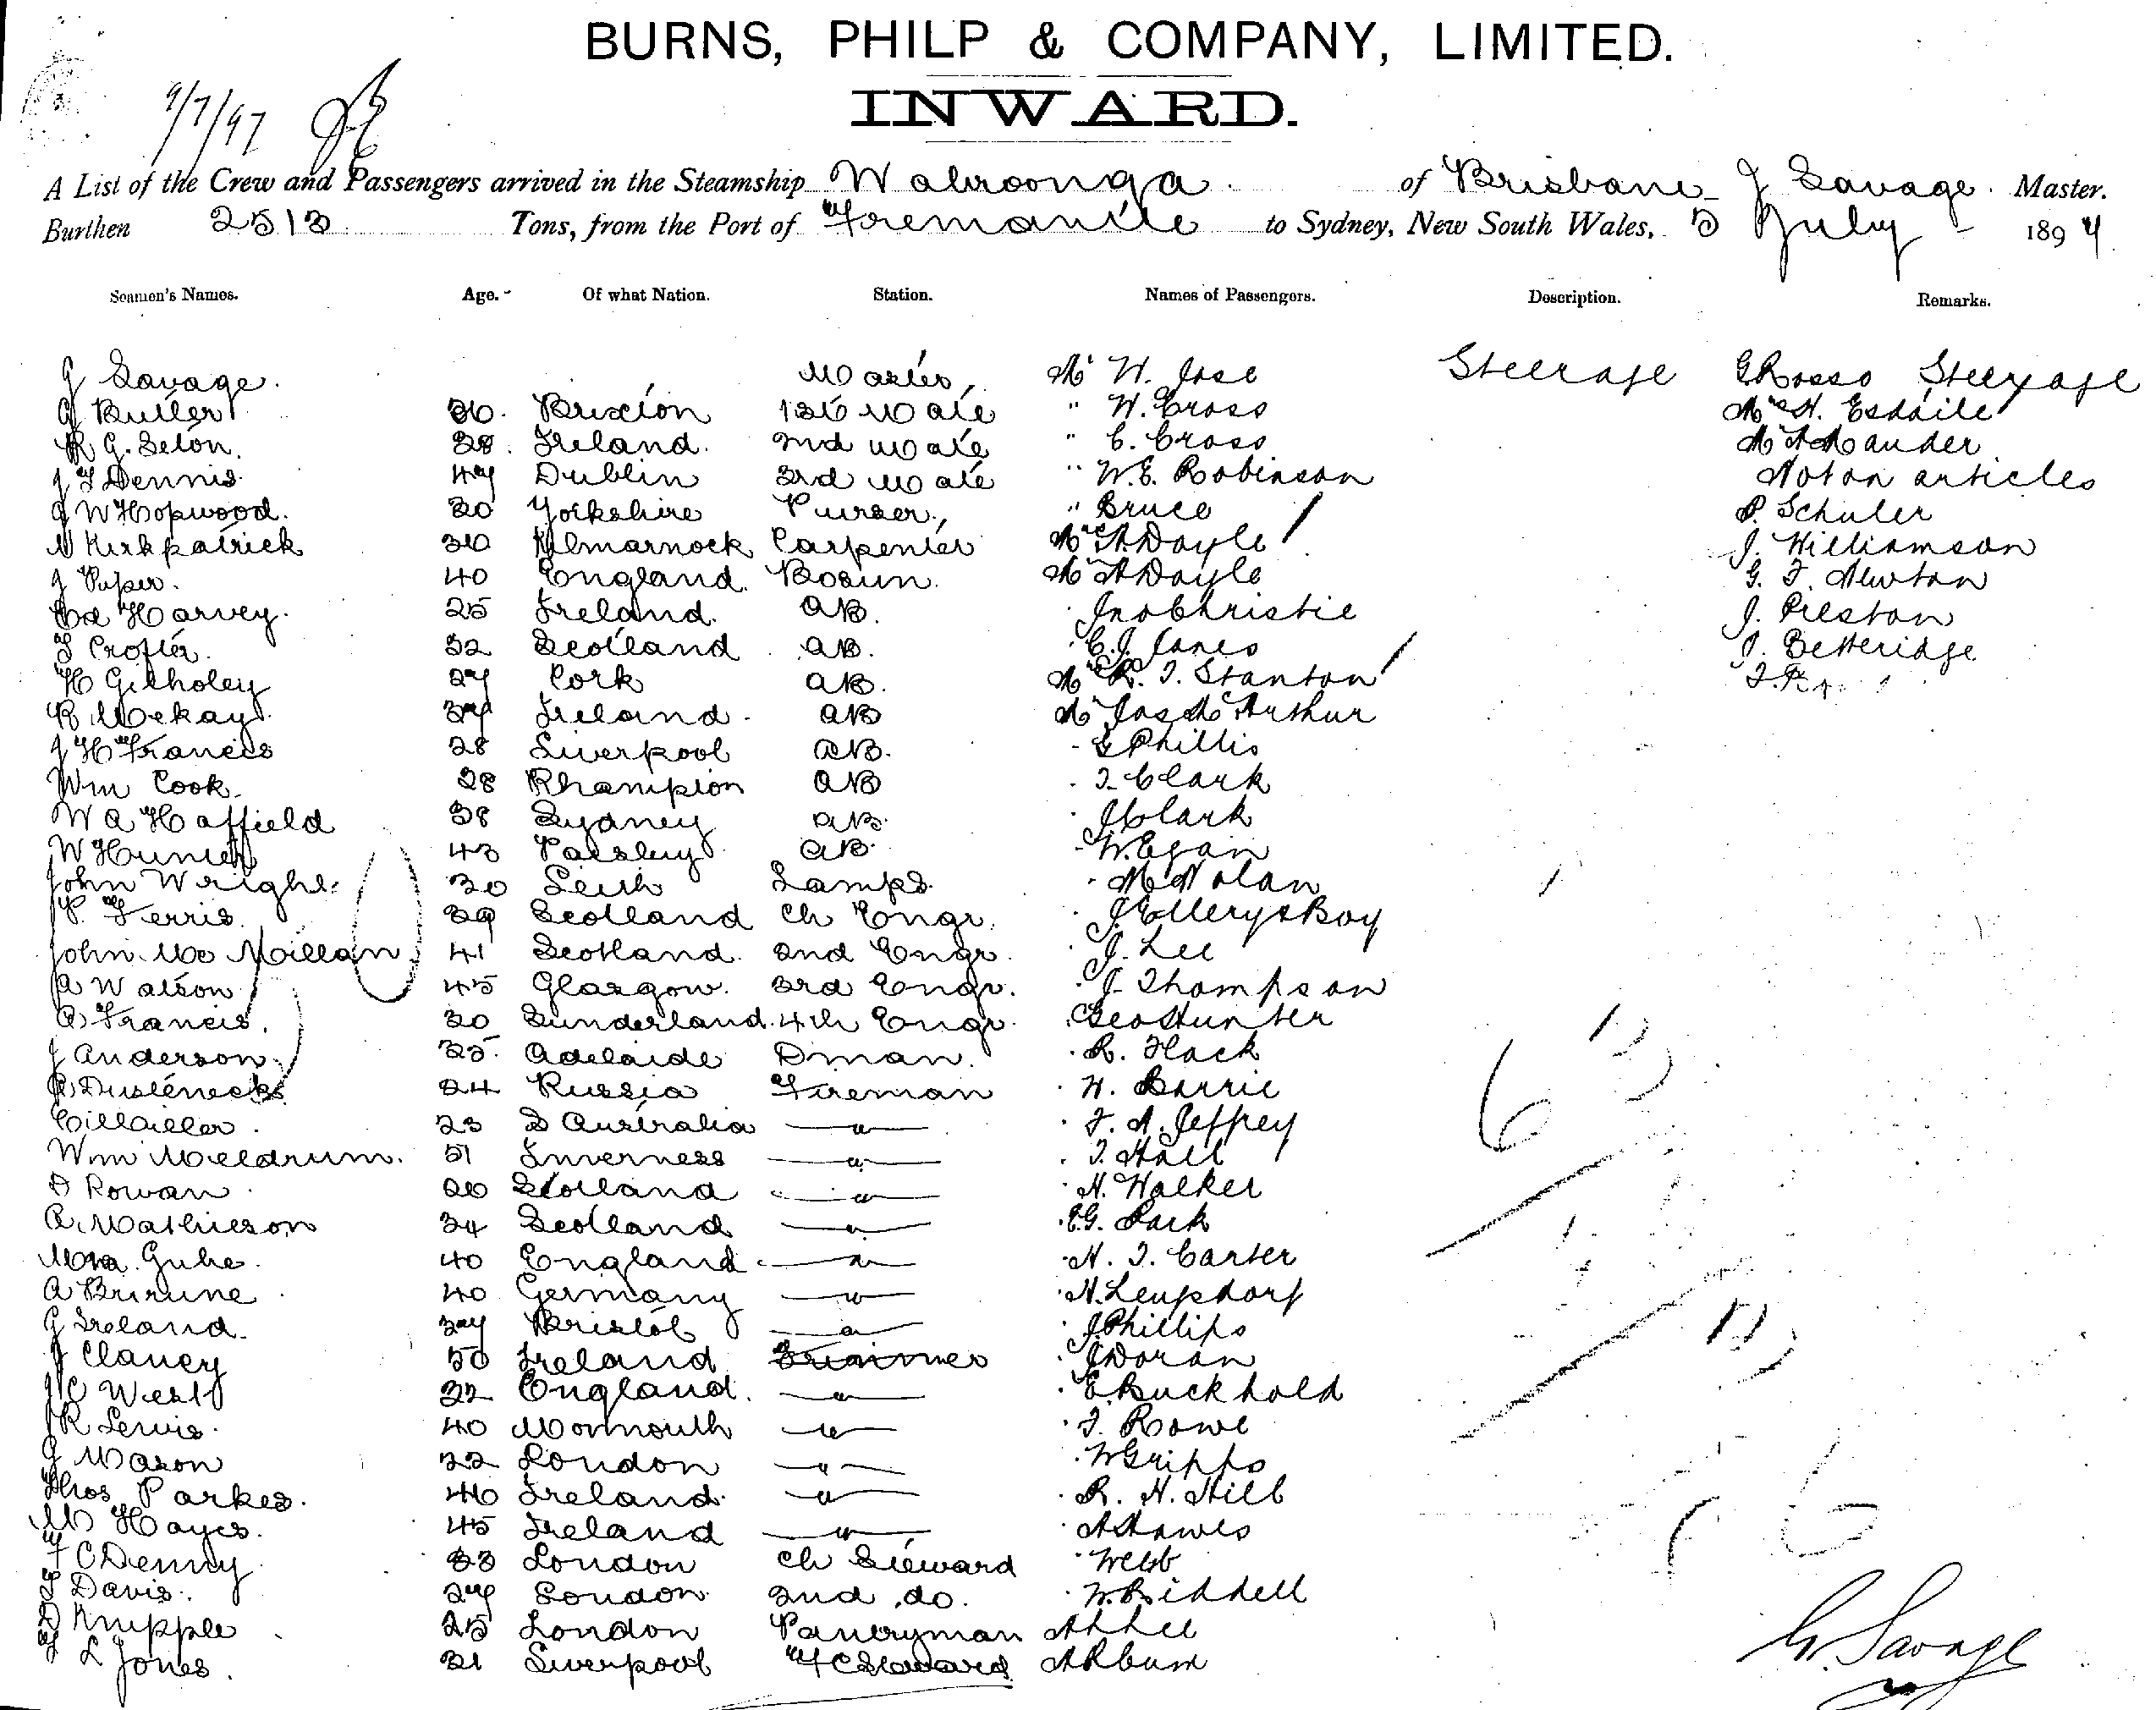 BURNS, PHILP & COMPANY, LIMITED.
INWARD.
9/7/97
A List of the Crew and Passengers arrived in the Steamship Wahroonga of Brisbane J Savage Master.
Burthen 2513 Tons, from the Port of Fremantle to Sydney, New South Wales, 5 July 1897
Seamen's Names. Age. Of what Nation. Station. Names of Passengers. Description. Remarks.
J Savage. Master, Mr W. Jose Steerage G Rosso Steerage
G Butler 36. Brixton 1st Mate " W. Cross Mrs H. Esdaile
R G. Seton. 28. Ireland. 2nd Mate " C. Cross Mr A Mander
J T Dennis. 47 Dublin 3rd Mate " W. E. Robinson Not on articles
J W Hopwood. 30 Yorkshire Purser, " Bruce P. Schuler
N Kirkpatrick 30 Kilmarnock Carpenter Mrs A. Doyle J. Williamson
J Piper. 40 England. Bosun. Mr A Doyle G. F. Newton
Harvey. 25 Ireland. AB. Jno Christie J. Preston
T Crofter. 32 Scotland AB. C. J. Jones J. Betteridge
H Gilholey 27 Cork AB. Mrs R. T. Stanton
R McKay. 37 Ireland. AB Mr Jas McArthur
J H Francis 28 Liverpool AB. E Phillis
Wm Cook. 28 Rhampton AB T. Clark
W A Haffield 38 Sydney AB. J Clark
W Hunter 43 Paisley AB. W. Egan
John Wright. 30 Leith Lamps. M Nolan
P. Ferris. 39 Scotland Ch Engr. J Ellery & Boy
John McMillan 41 Scotland. 2nd Engr. J. Lee
A Watson 45 Glasgow. 3rd Engr. J. Thompson
A Francis. 30 Sunderland. 4th Engr. Geo Hunter
J Anderson. 35. Adelaide Dman. R. Flack
24 Russia Fireman W. Barrie
23 S Australia — " — F. A. Jeffrey
Wm Meldrum. 51 Inverness — " — T. Hall
D Rowan 26 Scotland — " — H. Walker
A. Mathieson 34 Scotland — " — E. G. Park
40 England. — " — H. T. Carter
A Brirune 40 Germany — " — H. Leupdorf
G Ireland. 37 Bristol — " — J. Phillips
J Clancy 50 Ireland Trimmer J Doran
J C West 22 England. — " — E. Buckhold
J R Lewis. 40 Monmouth — " — T. Rowe
G Mason 22 London — " — W Gripps
Thos Parkes. 46 Ireland. — " — R. H. Hill
M Hayes. 45 Ireland — " — A Hawes
F C Denny 33 London Ch Steward Webb
T Davis. 27 London. 2nd do. W. Riddell
D Knipple 25 London Pantryman Ah Lee
T L Jones. 21 Liverpool FC Steward Ah Bum
J. Savage